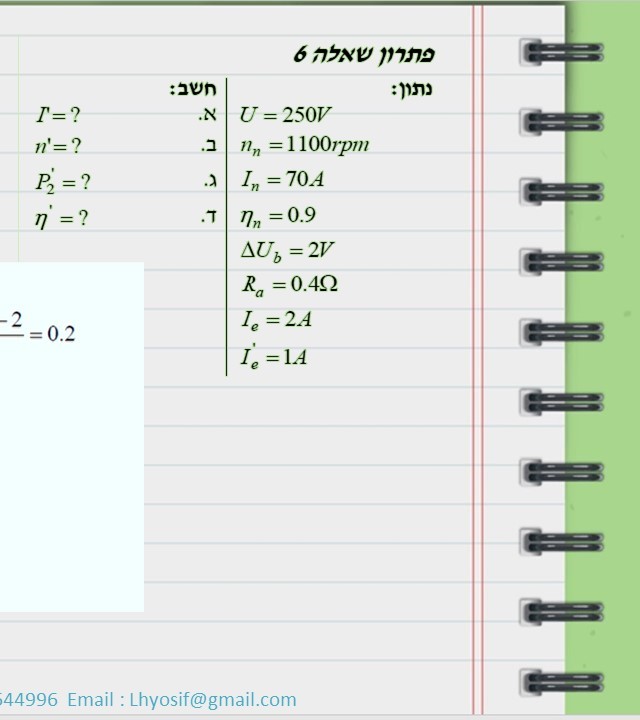 פתרון שאלה 6
נתון:
U = 250V
nₙ = 1100rpm
Iₙ = 70A
ηₙ = 0.9
ΔU_b = 2V
Rₐ = 0.4Ω
Iₑ = 2A
Iₑ' = 1A
חשב:
א. I' = ?
ב. n' = ?
ג. P₂' = ?
ד. η' = ?
-2
= 0.2
544996 Email : Lhyosif@gmail.com